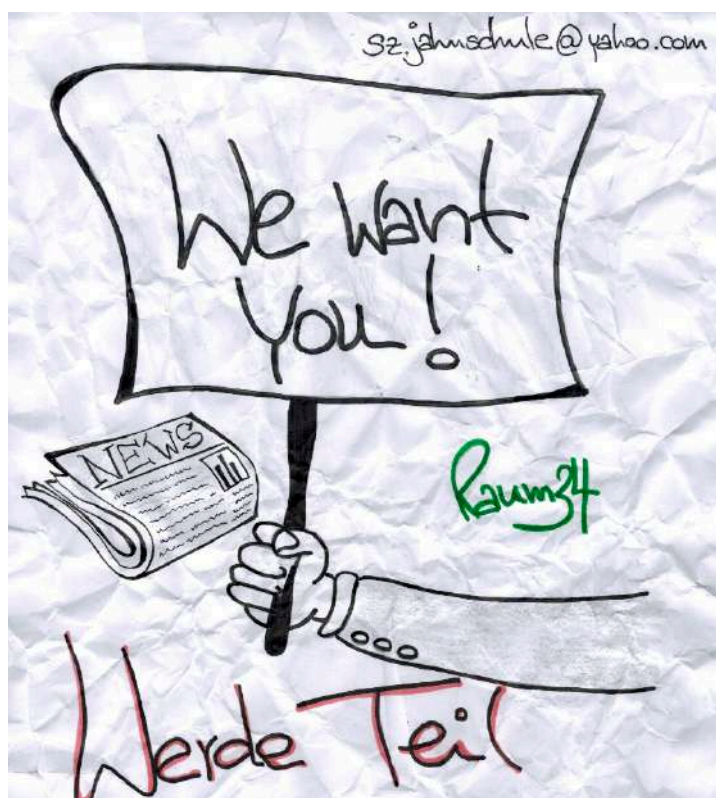 sz.jahnschule@yahoo.com
We want
You!
NEWS
Raum34
Werde Teil